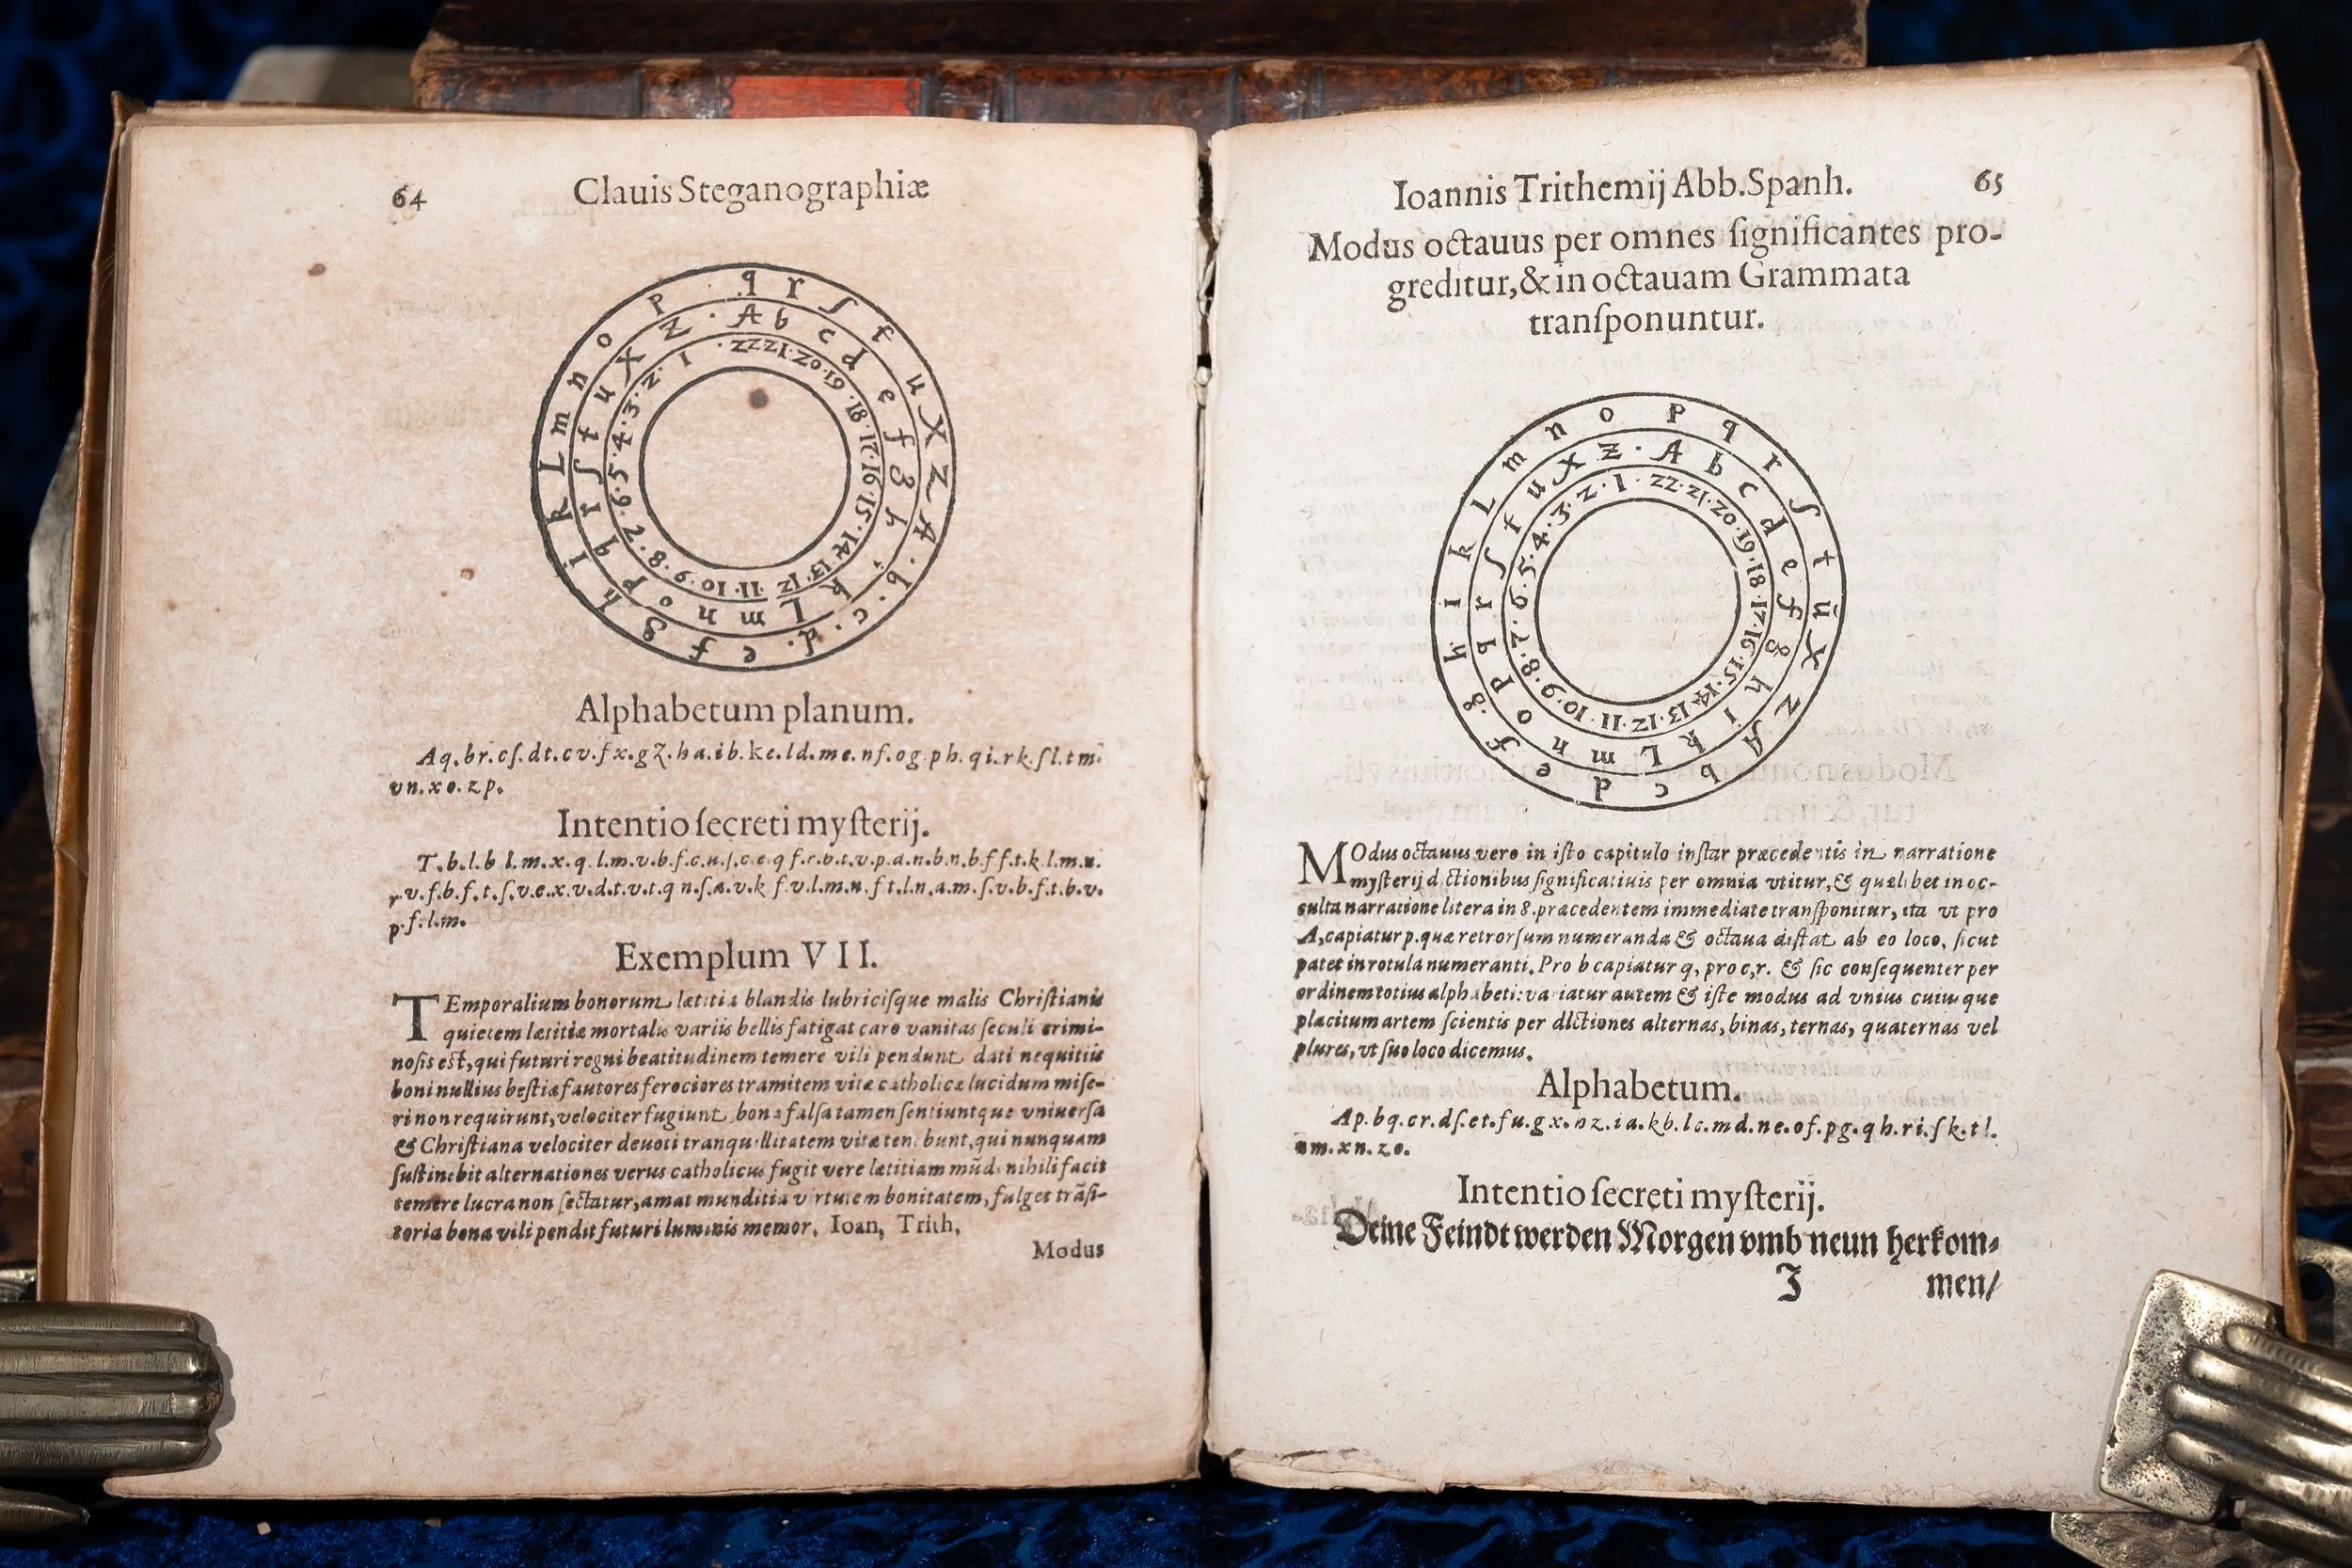 64 Clauis Steganographiæ
q r ſ t u X Z A b c d e f g h i k L m n o p
A b c d e f g h i k L m n o p q r ſ t u X Z
22 21 20 19 18 17 16 15 14 13 12 11 10 9 8 7 6 5 4 3 2 1
Alphabetum planum.
Aq.br.cſ.dt.cv.fx.gz.ha.ib.kc.ld.me.nf.og.ph.qi.rk.ſl.tm.
vn.xo.zp.
Intentio ſecreti myſterij.
T.b.l.b l.m.x.q.l.m.v.b.f.c.u.ſ.c.e.q f.r.b.t.v.p.d.n.b.n.b.f f.t.k l.m.u.
r.v.f.b.f.t.ſ.v.e.x.v.d.t.v.t.q n.ſ.a.v.k f.v.l.m.n.f t.l.n.a.m.ſ.v.b.f.t.b.v.
p.f.l.m.
Exemplum VII.
TEmporalium bonorum lætitia blandis lubriciſque malis Chriſtianis
quietem lætitiæ mortalis variis bellis fatigat caro vanitas ſeculi crimi-
noſis eſt, qui futuri regni beatitudinem temere vili pendunt dati nequitiis
boni nullius beſtiæ fautores ferociores tramitem vitæ catholicæ lucidum miſe-
ri non requirunt, velociter fugiunt, bona falſa tamen ſentiuntque vniuerſa
& Chriſtiana velociter deuoti tranquillitatem vitæ tenebunt, qui nunquam
ſuſtinebit alternationes verus catholicus fugit vere lætitiam mūdi nihili facit
temere lucra non ſectatur, amat munditia virtutem bonitatem, fulget trāſi-
toria bona vili pendit futuri luminis memor. Ioan, Trith,
Modus
Ioannis Trithemij Abb.Spanh. 65
Modus octauus per omnes ſignificantes pro-
greditur, & in octauam Grammata
tranſponuntur.
p q r ſ t ū X Z A b c d e f g h i k L m n o
A b c d e f g h i k L m n o p q r ſ t u X Z
22 21 20 19 18 17 16 15 14 13 12 11 10 9 8 7 6 5 4 3 2 1
MOdus octauus vero in iſto capitulo inſtar præcedentis in narratione
myſterij dictionibus ſignificatiuis per omnia vtitur, & quælibet in oc-
culta narratione litera in 8. præcedentem immediate tranſponitur, ita vt pro
A, capiatur p. quæ retrorſum numeranda & octaua diſtat ab eo loco, ſicut
patet in rotula numeranti. Pro b capiatur q, pro c, r. & ſic conſequenter per
ordinem totius alphabeti: variatur autem & iſte modus ad vnius cuiuſque
placitum artem ſcientis per dictiones alternas, binas, ternas, quaternas vel
plures, vt ſuo loco dicemus.
Alphabetum.
Ap.bq.cr.dſ.et.fu.gx.hz.ia.kb.lc.md.ne.of.pg.qh.ri.ſk.tl.
um.xn.zo.
Intentio ſecreti myſterij.
Deine Feindt werden Morgen vmb neun herkom-
J men/